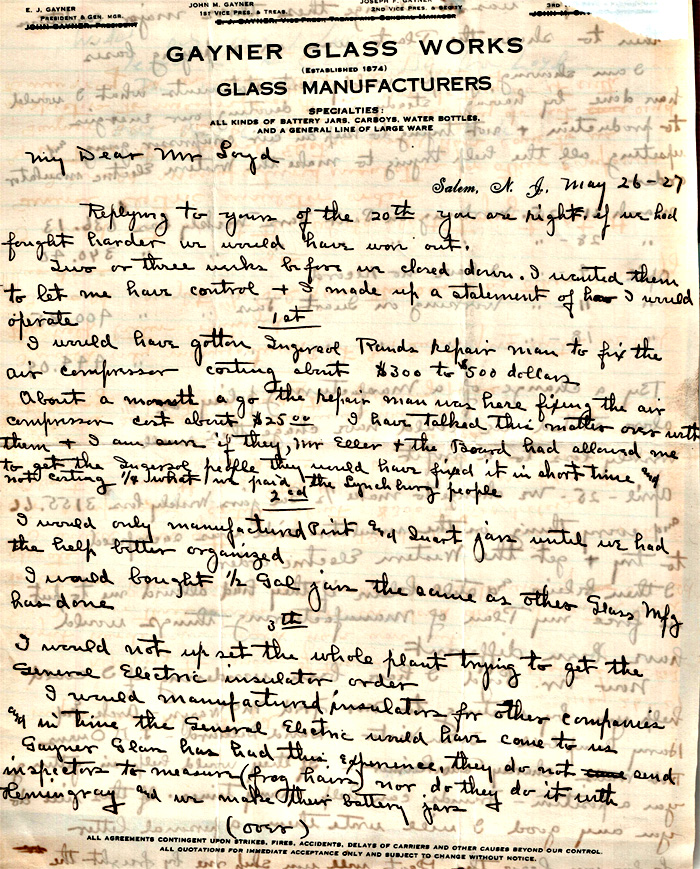 E. J. GAYNER
PRESIDENT & GEN. MGR.
JOHN GAYNER, PRESIDENT
JOHN M. GAYNER
1ST VICE PRES. & TREAS.
2ND VICE PRES. & SECGY
3RD
GAYNER GLASS WORKS
(ESTABLISHED 1874)
GLASS MANUFACTURERS
SPECIALTIES:
ALL KINDS OF BATTERY JARS, CARBOYS, WATER BOTTLES,
AND A GENERAL LINE OF LARGE WARE
My Dear Mr Loyd
Salem, N. J. May 26-27
Replying to yours of the 20th you are right, if we had
fought harder we would have won out.
Two or three weeks before we closed down. I wanted them
to let me have control + I made up a statement of how I would
operate
1st
I would have gotton Ingersol Rands repair man to fix the
air compressor costing about $300 to $500 dollars
About a month a go the repair man was here fixing the air
compressor cost about $25.00 I have talked this matter over with
them + I am sure if they, Mr Eller + the Board had allowed me
to get the Ingersol people they would have fixed it in short time and
not costing 1/8 what we paid the Lynchburg people
2ed
I would only manufactured Pint and Quart jars until we had
the help better organized
I would bought 1/2 Gal jars the same as other Glass Mfg
has done
3th
I would not up set the whole plant trying to get the
General Electric insulator order
I would manufactured insulators for other companies
and in time the General Electric would have come to us
Gayner Glass has had this experience, they do not send
inspectors to measure (frog hairs) nor do they do it with
Hemingray and we make their battery jars
(over)
ALL AGREEMENTS CONTINGENT UPON STRIKES, FIRES, ACCIDENTS, DELAYS OF CARRIERS AND OTHER CAUSES BEYOND OUR CONTROL.
ALL QUOTATIONS FOR IMMEDIATE ACCEPTANCE ONLY AND SUBJECT TO CHANGE WITHOUT NOTICE.